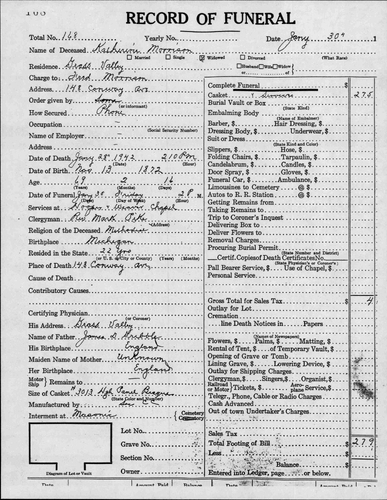 RECORD OF FUNERAL
Total No. 168 Yearly No. Date Jany 30th 1
Name of Deceased Katherine Morrison
Married Single Widowed Divorced (What Race)
Residence Grass Valley Husband Wife Widow of
Charge to Fred Morrison
Address 148 Conway Av
Order given by Sons (or informant)
How Secured Phone
Occupation (Social Security Number)
Name of Employer
Address
Date of Death Jany 28th 1942 2:10 P.M.
Date of Birth Nov 13 1872
Age 69 2 14
(Years) (Months) (Days)
Date of Funeral Jany 30 Friday 2 P. M.
(Date) (Day of Week)
Services at Chapel
Clergyman Rev Mark
Religion of the Deceased Methodist
Birthplace Michigan
Resided in the State 22 yrs
(or U. S. & City or County)
Place of Death 148 Conway Av
Cause of Death
Contributory Causes
Certifying Physician
His Address Grass Valley
Name of Father James S.
His Birthplace England
Maiden Name of Mother Unknown
Her Birthplace England
Motor Ship Remains to
Size of Casket
Manufactured by
Interment at Masonic Cemetery Crematory
Lot No.
Grave No.
Section No.
Owner
Diagram of Lot or Vault
Complete Funeral
Casket 275
Burial Vault or Box
(State Kind)
Embalming Body
Barber, $ Hair Dressing, $
Dressing Body, $ Underwear, $
Suit or Dress
(State Kind and Color)
Slippers, $ Hose, $
Folding Chairs, $ Tarpaulin, $
Candelabrum, $ Candles, $
Door Spray, $ Gloves, $
Funeral Car, $ Ambulance, $
Limousines to Cemetery @ $
Autos to R. R. Station @ $
Getting Remains from
Taking Remains to
Trip to Coroner's Inquest
Delivering Box to
Deliver Flowers to
Removal Charges
Procuring Burial Permit
(State Number and District)
Certif. Copies of Death Certificates No.
(State Physician's or Coroner's)
Pall Bearer Service, $ Use of Chapel, $
Personal Service
Gross Total for Sales Tax 4
Outlay for Lot
Cremation
line Death Notices in Papers
(Names of Newspapers)
Flowers, $ Palms, $ Matting, $
Rental of Tent, $ of Temporary Vault, $
Opening of Grave or Tomb
Lining Grave, $ Lowering Device, $
Outlay for Shipping Charges
Clergyman, $ Singers, $ Organist, $
Railroad Motor Tickets, $ Aeroplane Service, $
Telegr., Phone, Cable or Radio Charges
Cash Advanced
Out of town Undertaker's Charges
Sales Tax
Total Footing of Bill 279
Less
Balance
Entered into Ledger, page or below
Date Amount Paid Balance Date Amount Paid Balance